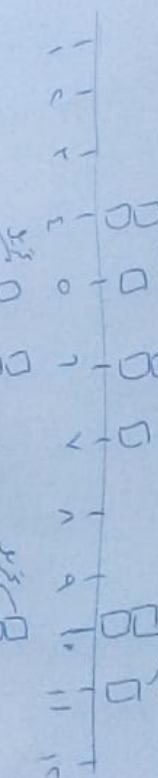 ١ ٢ ٣ ٤ ٥ ٦ ٧ ٨ ٩ ١٠ ١١ ١٢